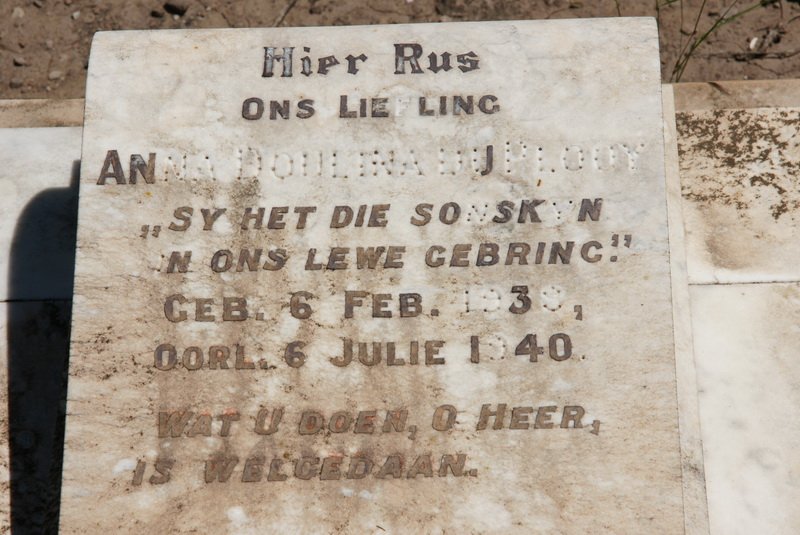 Hier Rus
ONS LIEFLING
ANNA DOULINA DU PLOOY
„SY HET DIE SONSKYN
IN ONS LEWE GEBRING."
GEB. 6 FEB. 1939,
OORL. 6 JULIE 1940.
WAT U DOEN, O HEER,
IS WELGEDAAN.